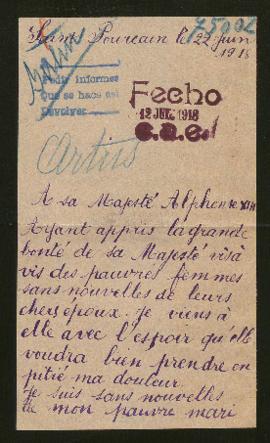 75002
Saint Pourçain le 22 juin
1918
Pedir informes
Que se hace así
Devolver
Fecho
12 JUL. 1918
e.a.e.
Artus
A sa Majesté Alphonse XIII
Ayant appris la grande
bonté de sa Majesté vis à
vis des pauvres femmes
sans nouvelles de leurs
chers époux. Je viens à
elle avec l'espoir qu'elle
voudra bien prendre en
pitié ma douleur.
Je suis sans nouvelles
de mon pauvre mari